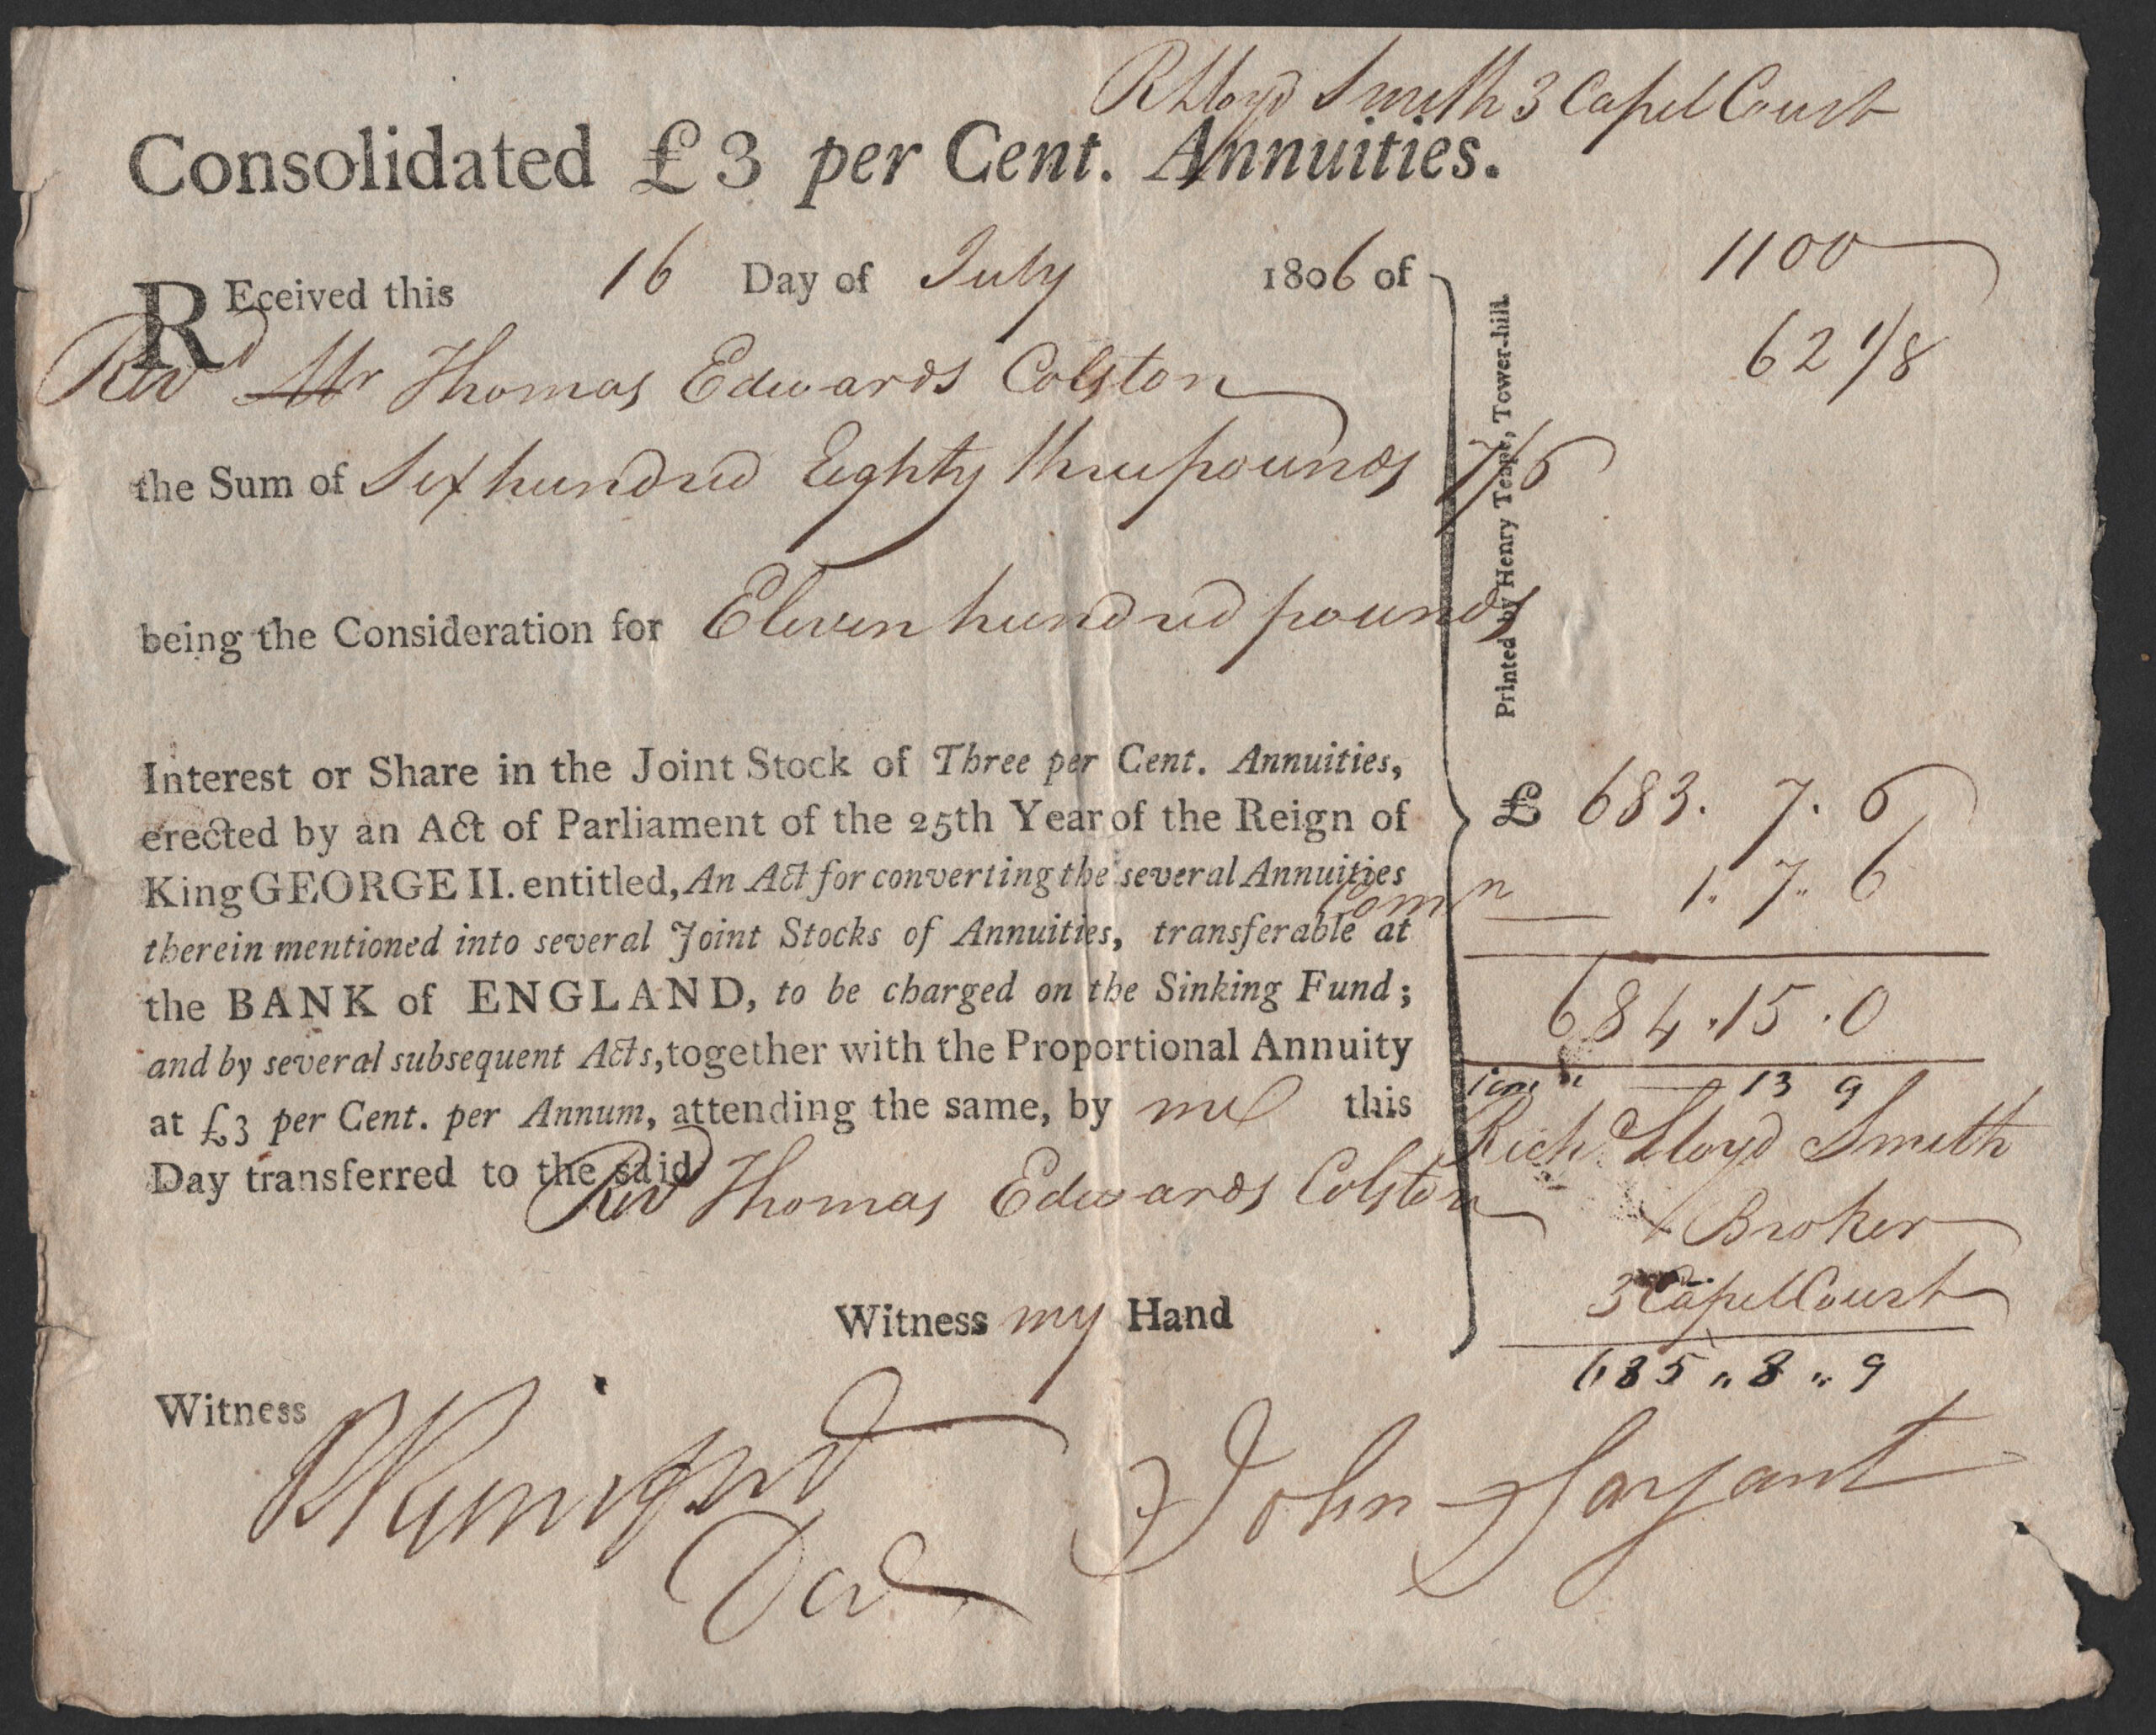 R Lloyd Smith 3 Capel Court
Consolidated £3 per Cent. Annuities.
REceived this 16 Day of July 1806 of
Revd Mr Thomas Edwards Colston
the Sum of Six hundred Eighty three pounds 7/6
being the Consideration for Eleven hundred pounds
Interest or Share in the Joint Stock of Three per Cent. Annuities,
erected by an Act of Parliament of the 25th Year of the Reign of
King GEORGE II. entitled, An Act for converting the several Annuities
therein mentioned into several Joint Stocks of Annuities, transferable at
the BANK of ENGLAND, to be charged on the Sinking Fund;
and by several subsequent Acts, together with the Proportional Annuity
at £3 per Cent. per Annum, attending the same, by me this
Day transferred to the said
Revd Thomas Edwards Colston
Witness my Hand
Witness
John Sarjant
Printed by Henry Teape, Tower-hill.
1100
62 1/8
£ 683. 7. 6
Comn 1. 7. 6
684. 15. 0
13 9
Richd Lloyd Smith
Broker
3 Capel Court
685 " 8 " 9